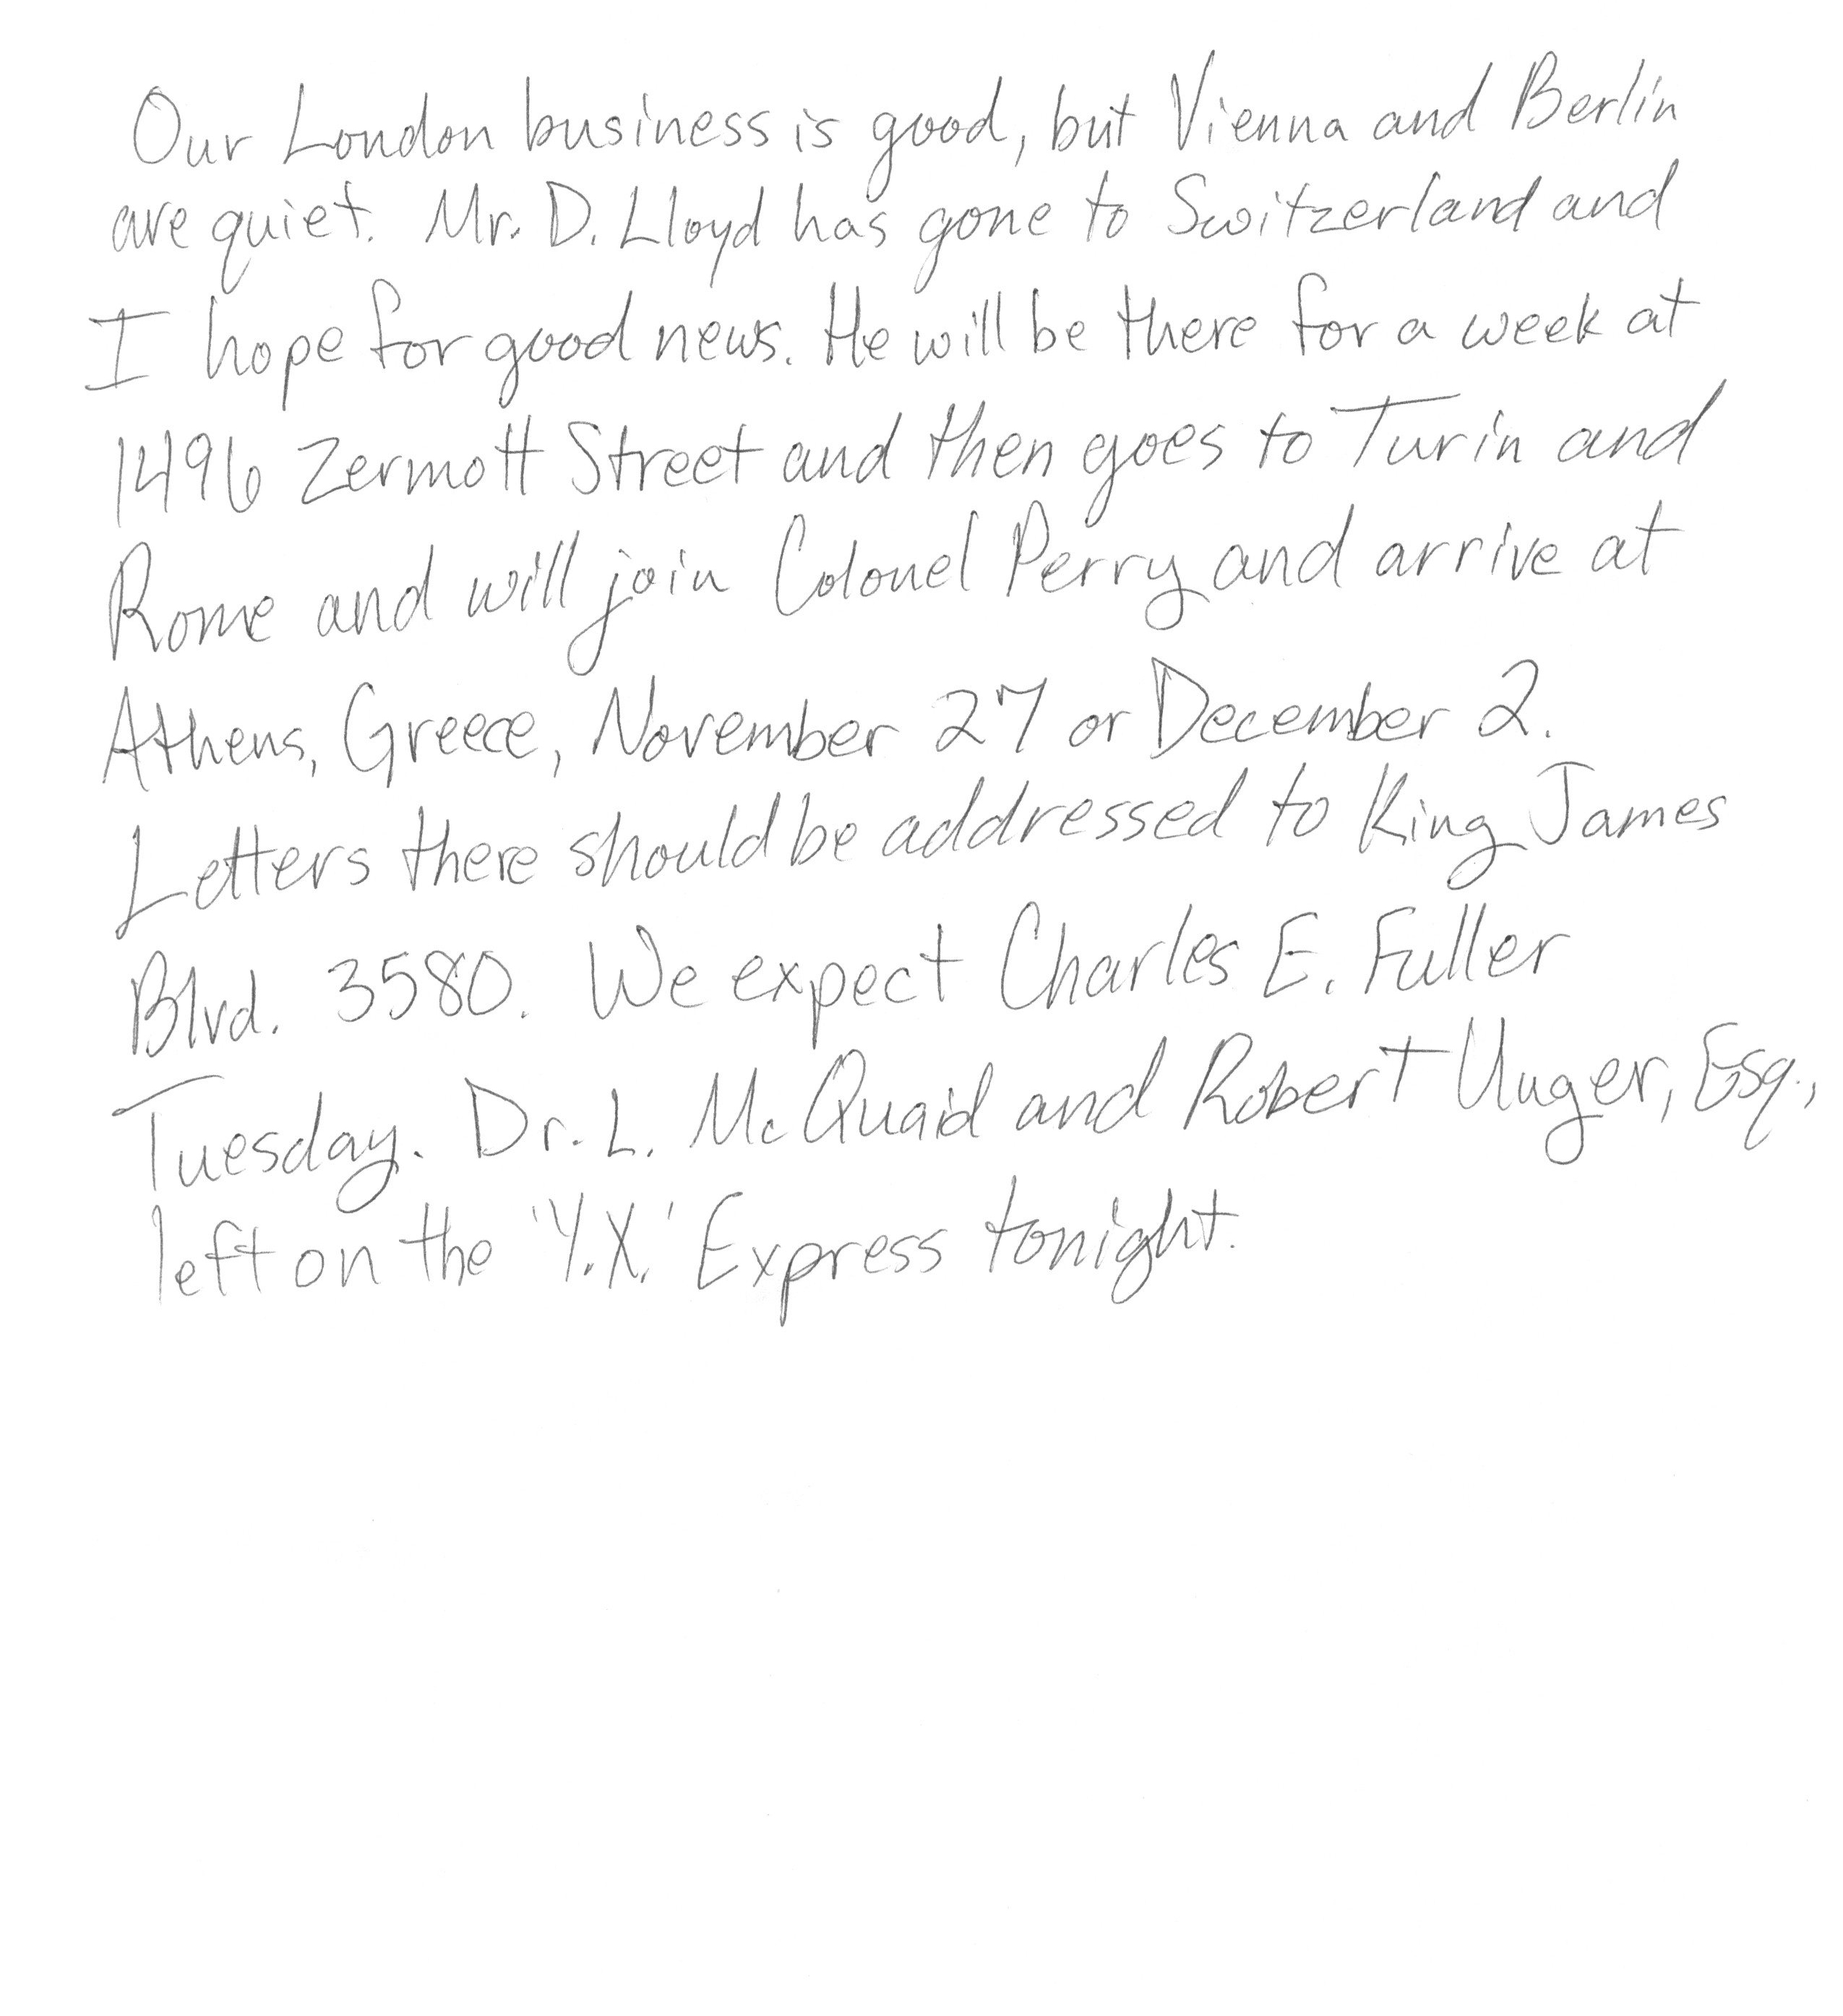 Our London business is good, but Vienna and Berlin
are quiet. Mr. D. Lloyd has gone to Switzerland and
I hope for good news. He will be there for a week at
1496 Zermott Street and then goes to Turin and
Rome and will join Colonel Perry and arrive at
Athens, Greece, November 27 or December 2.
Letters there should be addressed to King James
Blvd. 3580. We expect Charles E. Fuller
Tuesday. Dr. L. McQuaid and Robert Unger, Esq.,
left on the 'Y.X.' Express tonight.